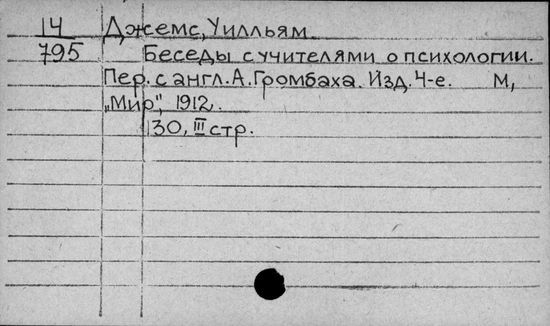 14 Джемс, Уилльям.
795 Беседы с учителями о психологии.
Пер. с англ. А. Громбаха. Изд. 4-е. М,
„Мир", 1912.
130, III стр.